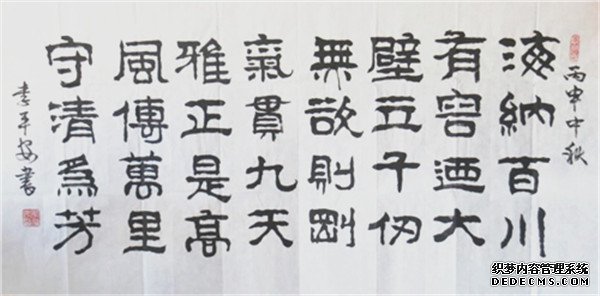 丙申中秋
海納百川
有容迺大
壁立千仞
無欲則剛
氣貫九天
雅正是高
風傳萬里
守清為芳
李平安書
织梦内容管理系统
DEDECMS.COM